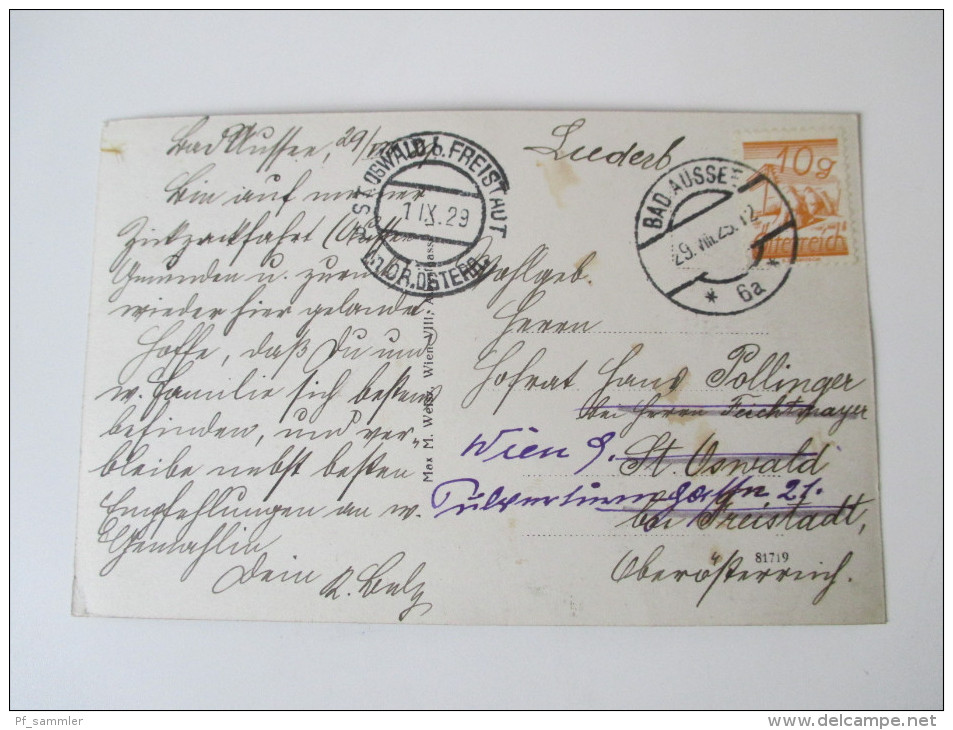 Bad Aussee, 29/VIII
Bin auf meiner
Zickzackfahrt
Gmunden u. zurück
wieder hier gelandet
Hoffe, daß Du und
w. Familie sich bestens
befinden, und ver-
bleibe nebst besten
Empfehlungen an w.
Gemahlin
Dein
ST. OSWALD b. FREISTADT
1 IX. 29
OB. ÖSTERR.
Max M. Weiss, Wien VIII,
BAD AUSSEE
29. VIII. 29. 12
* 6a *
10g
Österreich
Wohlgeb.
Herrn
Hofrat Hans Pollinger
bei Herrn Feichtmayer
Wien 9. St. Oswald
Pulverturmgasse 21.
bei Freistadt,
81719
Oberösterreich.
Pf_sammler
www.delcampe.net